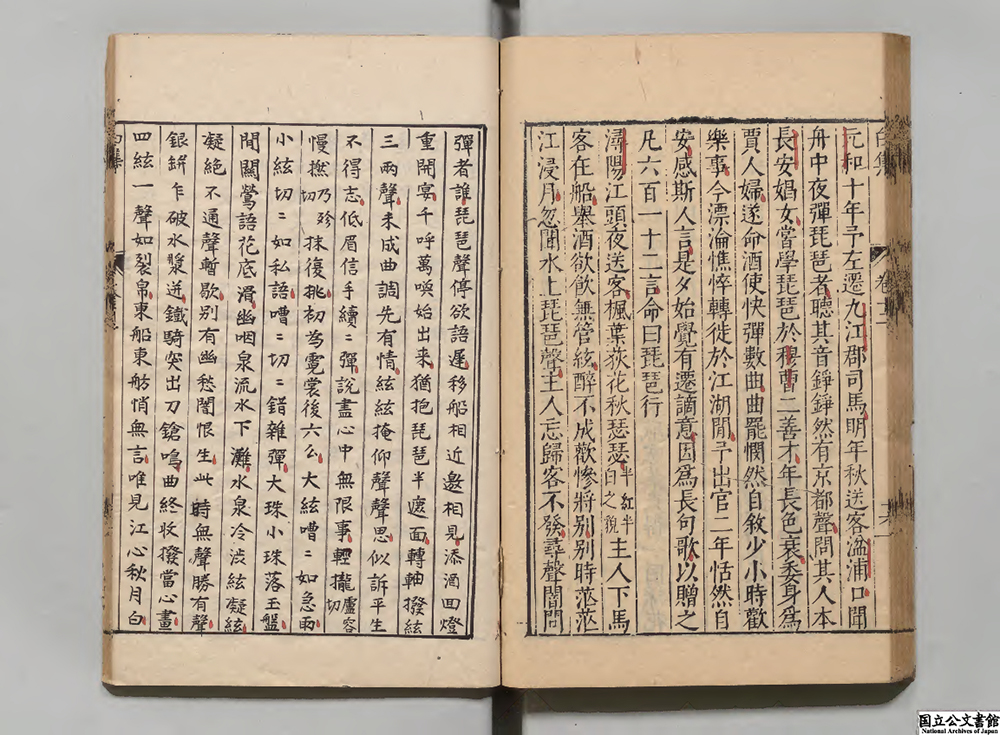 元和十年予左遷九江郡司馬明年秋送客湓浦口聞
舟中夜彈琵琶者聽其音錚錚然有京都聲問其人本
長安娼女嘗學琵琶於穆曹二善才年長色衰委身爲
賈人婦遂命酒使快彈數曲曲罷憫然自敘少小時歡
樂事今漂淪憔悴轉徙於江湖間予出官二年恬然自
安感斯人言是夕始覺有遷謫意因爲長句歌以贈之
凡六百一十二言命曰琵琶行
潯陽江頭夜送客楓葉荻花秋瑟瑟半紅半白之貌主人下馬
客在船舉酒欲飲無管絃醉不成歡慘將别别時茫茫
江浸月忽聞水上琵琶聲主人忘歸客不發尋聲闇問
彈者誰琵琶聲停欲語遲移船相近邀相見添酒回燈
重開宴千呼萬喚始出来猶抱琵琶半遮面轉軸撥絃
三兩聲未成曲調先有情絃絃掩仰聲聲思似訴平生
不得志低眉信手續〻彈說盡心中無限事輕攏盧容切
慢撚乃殄切抹復挑初爲霓裳後六么大絃嘈〻如急雨
小絃切〻如私語嘈〻切〻錯雜彈大珠小珠落玉盤
間關鶯語花底滑幽咽泉流水下灘水泉冷澁絃凝絃
凝絶不通聲暫歇别有幽愁闇恨生此時無聲勝有聲
銀缾乍破水漿迸鐵騎突出刀鎗鳴曲終收撥當心畫
四絃一聲如裂帛東船東舫悄無言唯見江心秋月白
国立公文書館
National Archives of Japan